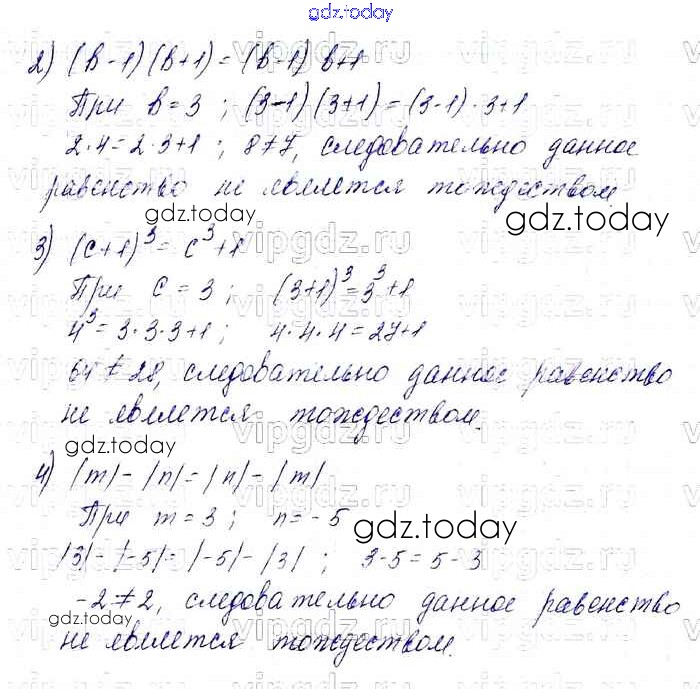 gdz.today
2) (b-1)(b+1)=(b-1) b+1
При b=3 ; (3-1)(3+1)=(3-1)·3+1
2·4=2·3+1 ; 8≠7, следовательно данное
равенство не является тождеством
gdz.today
gdz.today
3) (c+1)³=c³+1
При c=3 ; (3+1)³=3³+1
4³=3·3·3+1 ; 4·4·4=27+1
64≠28, следовательно данное равенство
не является тождеством.
gdz.today
4) |m|-|n|=|n|-|m|
При m=3 ; n=-5
gdz.today
|3|-|-5|=|-5|-|3| ; 3-5=5-3
-2≠2, следовательно данное равенство
gdz.today
не является тождеством.